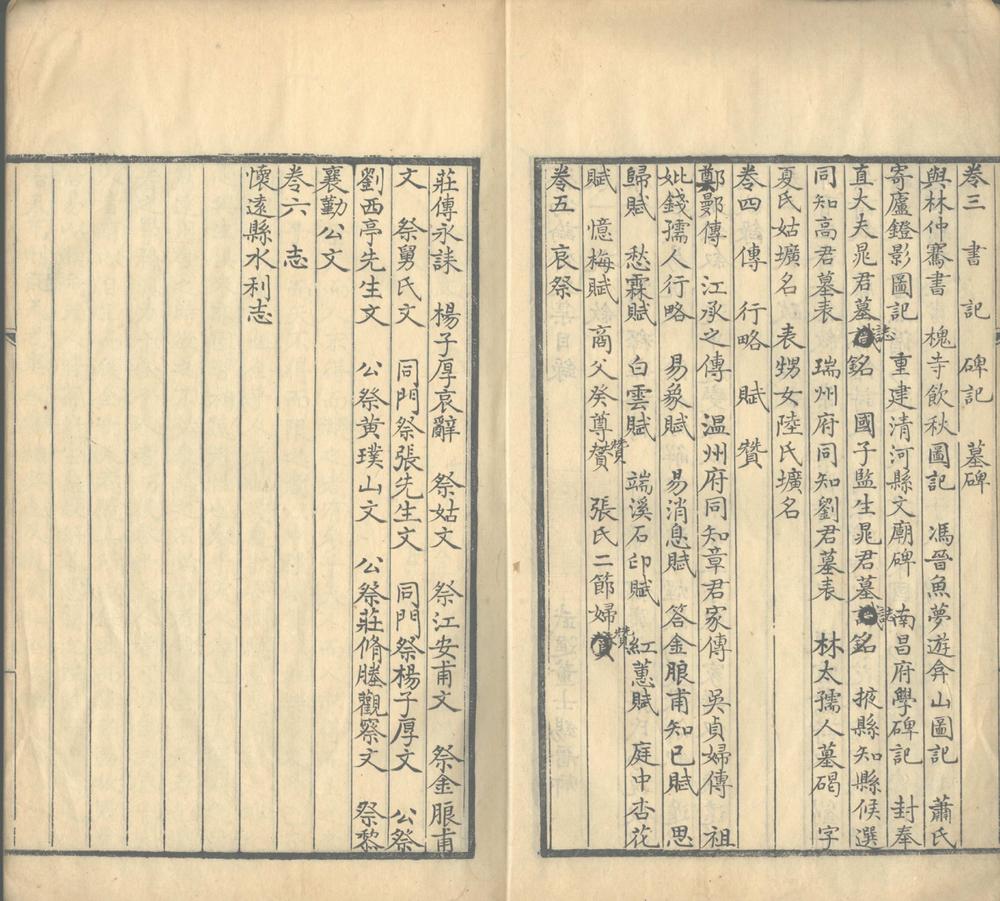 卷三 書 記 碑記 墓碑
與林仲騫書 槐寺飲秋圖記 馮晉魚夢遊弇山圖記 蕭氏
寄廬鐙影圖記 重建清河縣文廟碑 南昌府學碑記 封奉
直大夫晁君墓誌銘 國子監生晁君墓誌銘 掖縣知縣候選
同知高君墓表 瑞州府同知劉君墓表 林太孺人墓碣 字
夏氏姑壙名 表甥女陸氏壙名
卷四 傳 行略 賦 贊
鄭鄤傳 江承之傳 溫州府同知章君家傳 吳貞婦傳 祖
妣錢孺人行略 易象賦 易消息賦 答金朖甫知己賦 思
歸賦 愁霖賦 白雲賦 端溪石印賦 紅蕙賦 庭中杏花
賦 憶梅賦 商父癸尊贊 張氏二節婦贊
卷五 哀祭
莊傳永誄 楊子厚哀辭 祭姑文 祭江安甫文 祭金朖甫
文 祭舅氏文 同門祭張先生文 同門祭楊子厚文 公祭
劉西亭先生文 公祭黃璞山文 公祭莊脩塍觀察文 祭黎
襄勤公文
卷六 志
懷遠縣水利志